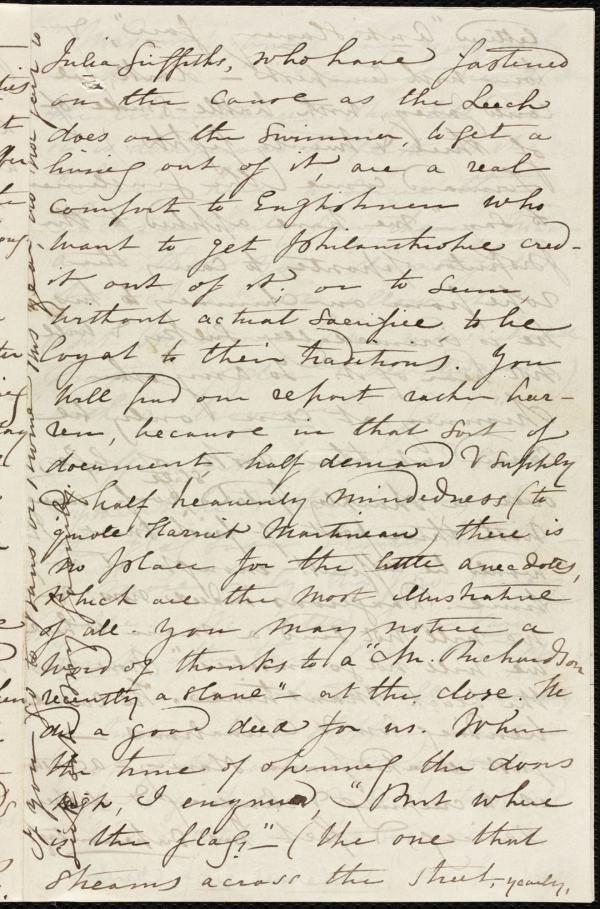 Julia Griffiths, who have fastened
on the cause as the Leech
does on the swimmer, to get a
living out of it, are a real
comfort to Englishmen who
want to get philanthropic cred-
it out of it; or to seem,
without actual sacrifice, to be
loyal to their traditions. You
will find our report rather bar-
ren, because in that sort of
document half demand & supply
& half heavenly mindedness (to
quote Harriet Martineau, there is
no place for the little anecdotes,
which are the most illustrative
of all. You may notice a
word of "thanks to a "Mr. Richardson
recently a slave" - at the close. He
did a good deed for us. When
the time of opening the doors
was nigh, I enquired, "But where
is the flag?" - (the one that
streams across the street, yearly,
If you go to
this year, do not fail to